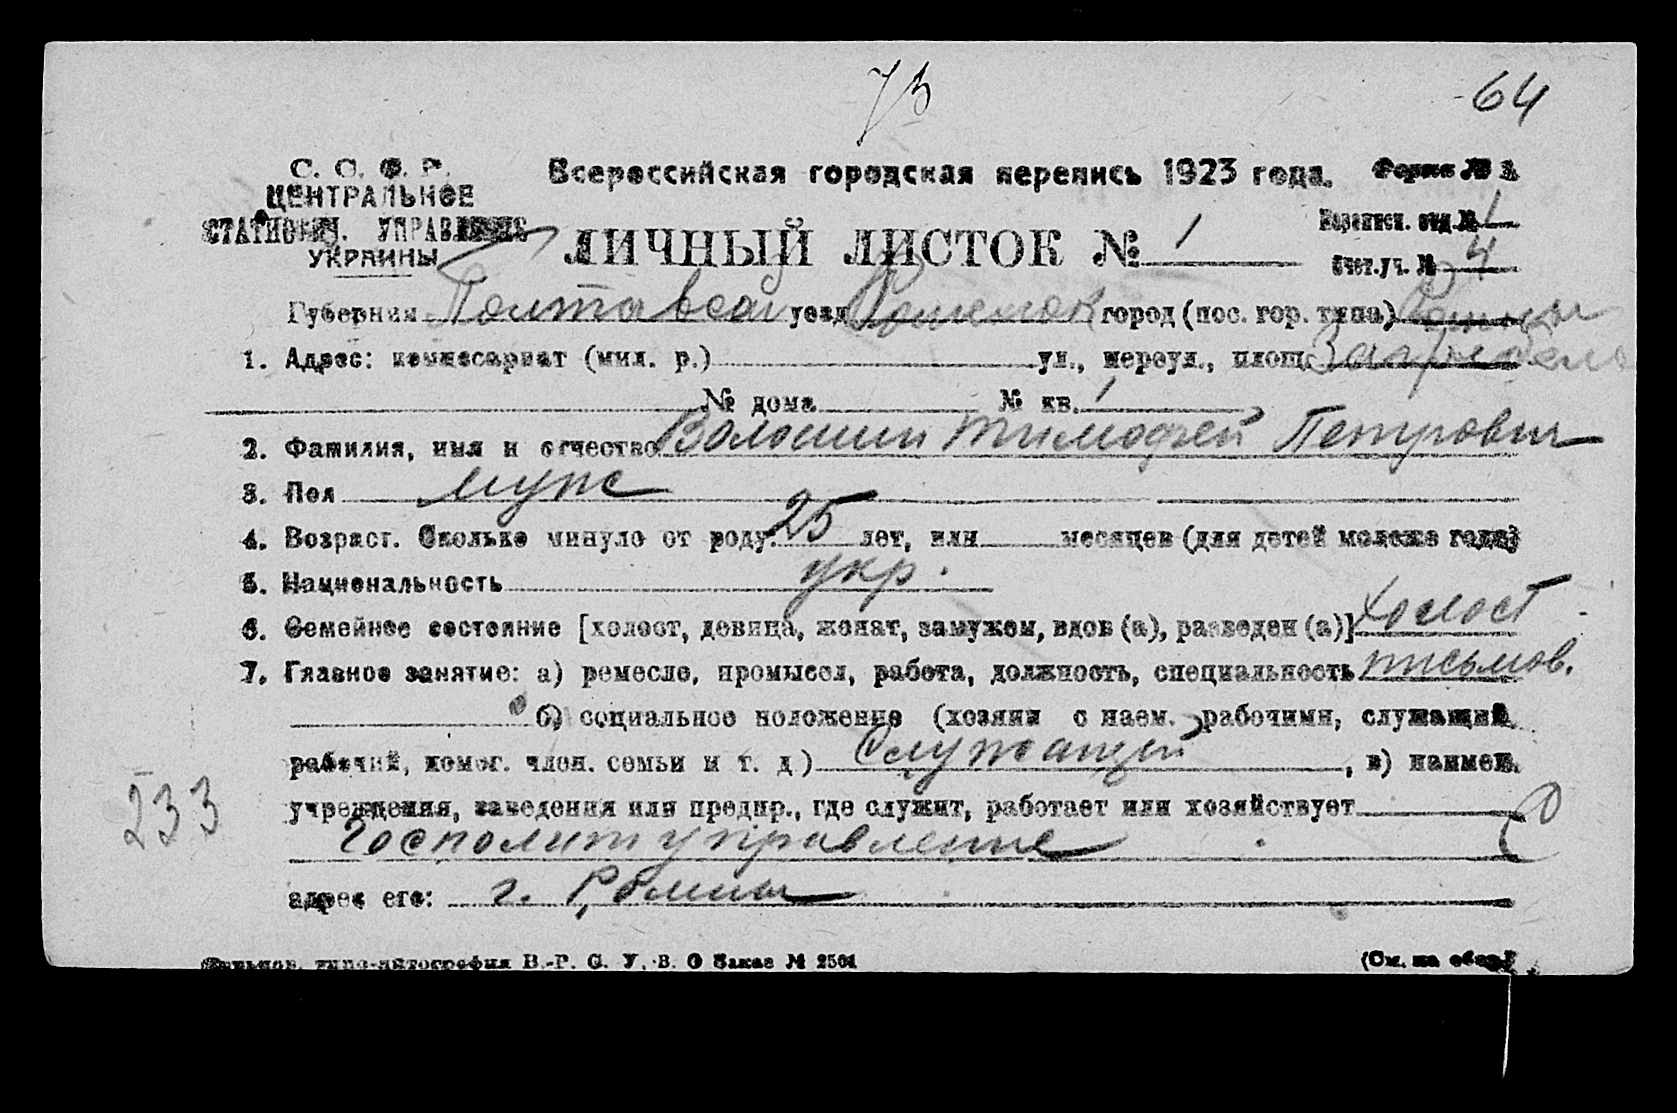 64
С. С. Ф. Р.
ЦЕНТРАЛЬНОЕ
СТАТИСТИЧ. УПРАВЛЕНИЕ
УКРАИНЫ
Всероссийская городская перепись 1923 года. Форма № 3.
ЛИЧНЫЙ ЛИСТОК № 1
Переписн. отд. № 1
Счет. уч. № 4
Губерния Полтавская уезд Роменск город (пос. гор. типа) Ромны
1. Адрес: комиссариат (мил. р.) ул., переул., площ.
№ дома № кв. 1
2. Фамилия, имя и отчество Волошин Тимофей Петрович
3. Пол мужс
4. Возраст. Сколько минуло от роду: 25 лет, или месяцев (для детей моложе года)
5. Национальность укр.
6. Семейное состояние [холост, девица, женат, замужем, вдов (а), разведен (а)] холост
7. Главное занятие: а) ремесло, промысел, работа, должность, специальность письмов.
б) социальное положение (хозяин с наем. рабочими, служащий,
рабочий, помог. член. семьи и т. д.) Служащий, в) наимен.
учреждения, заведения или предпр., где служит, работает или хозяйствует
Госполитуправление
233
адрес его: г. Ромны
В.-Р. С. У. В. О Заказ № 2504 (См. на обор.)